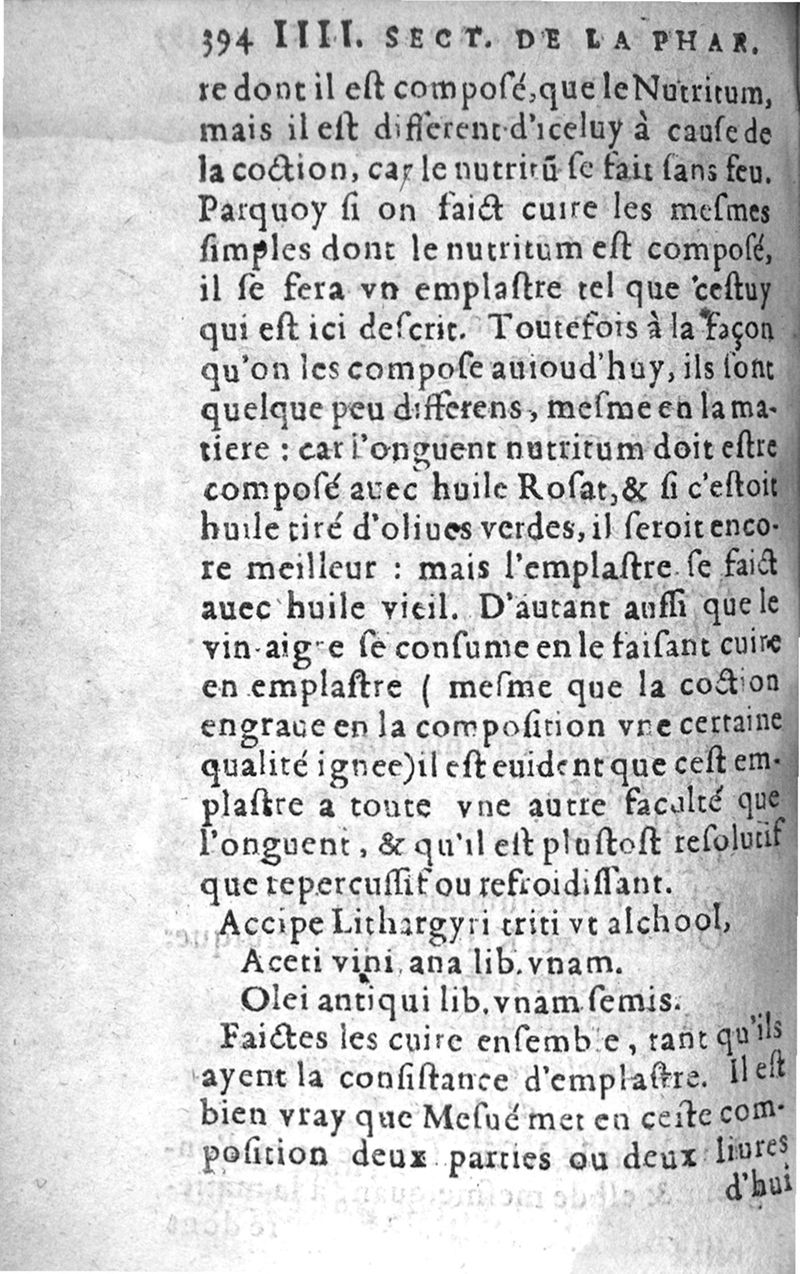 394 IIII. SECT. DE LA PHAR.
re dont il eſt compoſé, que le Nutritum,
mais il eſt different d'iceluy à cauſe de
la coction, car le nutritū ſe fait ſans feu.
Parquoy ſi on faict cuire les meſmes
ſimples dont le nutritum eſt compoſé,
il ſe fera vn emplaſtre tel que ceſtuy
qui eſt ici deſcrit. Toutefois à la façon
qu'on les compoſe auioud'huy, ils ſont
quelque peu differens, meſme en la ma-
tiere : car l'onguent nutritum doit eſtre
compoſé auec huile Roſat, & ſi c'eſtoit
huile tiré d'oliues verdes, il ſeroit enco-
re meilleur : mais l'emplaſtre ſe faict
auec huile vieil. D'autant auſſi que le
vin-aigre ſe conſume en le faiſant cuire
en emplaſtre ( meſme que la coction
engraue en la compoſition vne certaine
qualité ignee) il eſt euident que ceſt em-
plaſtre a toute vne autre faculté que
l'onguent, & qu'il eſt pluſtoſt reſolutif
que repercuſſif ou refroidiſſant.
Accipe Lithargyri triti vt alchool,
Aceti vini ana lib. vnam.
Olei antiqui lib. vnam ſemis.
Faictes les cuire enſemble, tant qu'ils
ayent la conſiſtance d'emplaſtre. Il eſt
bien vray que Meſué met en ceſte com-
poſition deux parties ou deux liures
d'hui